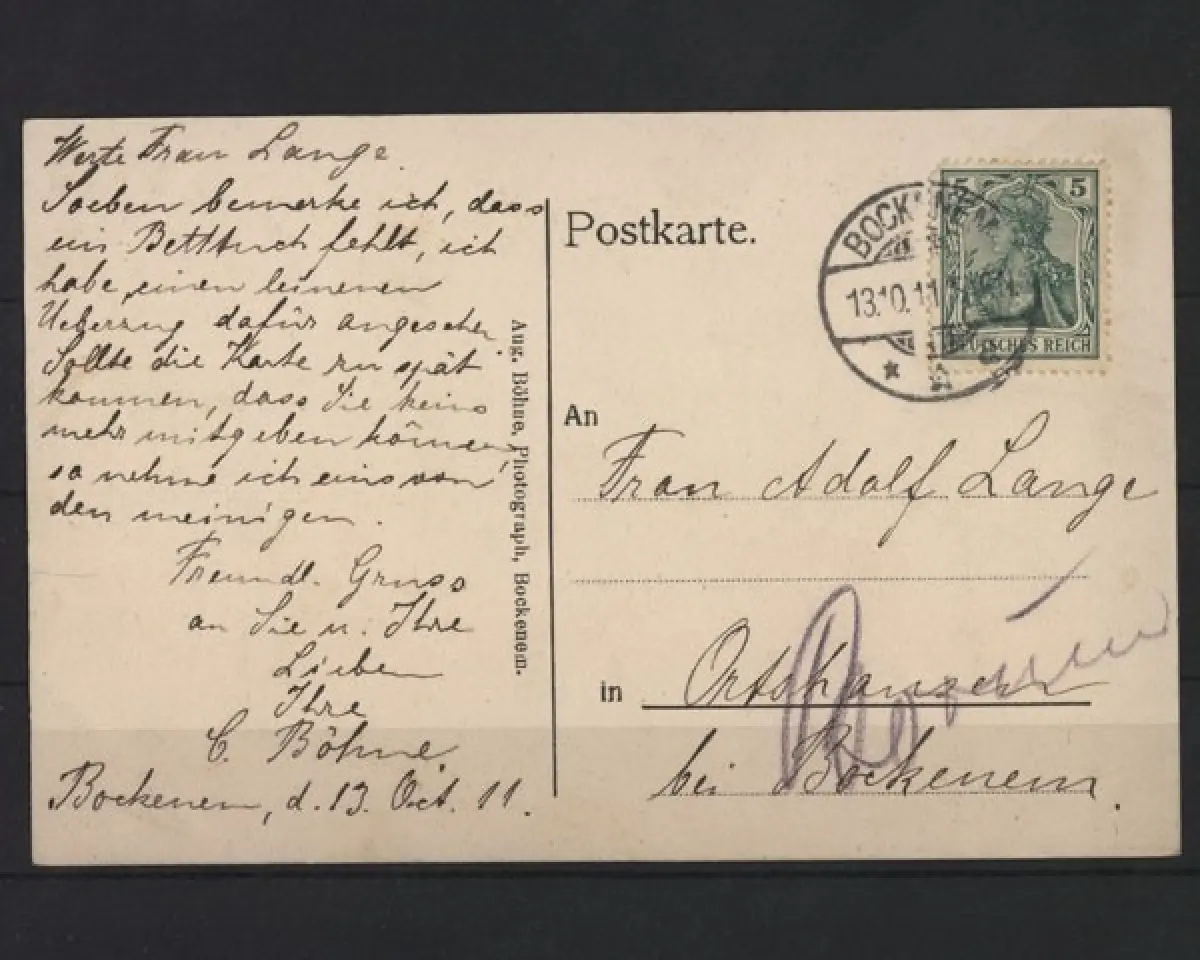 Werte Frau Lange.
Soeben bemerke ich, dass
ein Betttuch fehlt, ich
habe einen leinenen
Ueberzug dafür angesehen.
Sollte die Karte zu spät
kommen, dass Sie keins
mehr mitgeben können,
so nehme ich eins von
den meinigen.
Freundl. Gruss
an Sie u. Ihre
Lieben
Ihre
C. Böhme.
Bockenem, d. 13. Oct. 11.
Aug. Böhme, Photograph, Bockenem.
Postkarte.
BOCKENEM
13.10.11
5 5
DEUTSCHES REICH
An
Frau Adolf Lange
in Ortshausen
bei Bockenem.